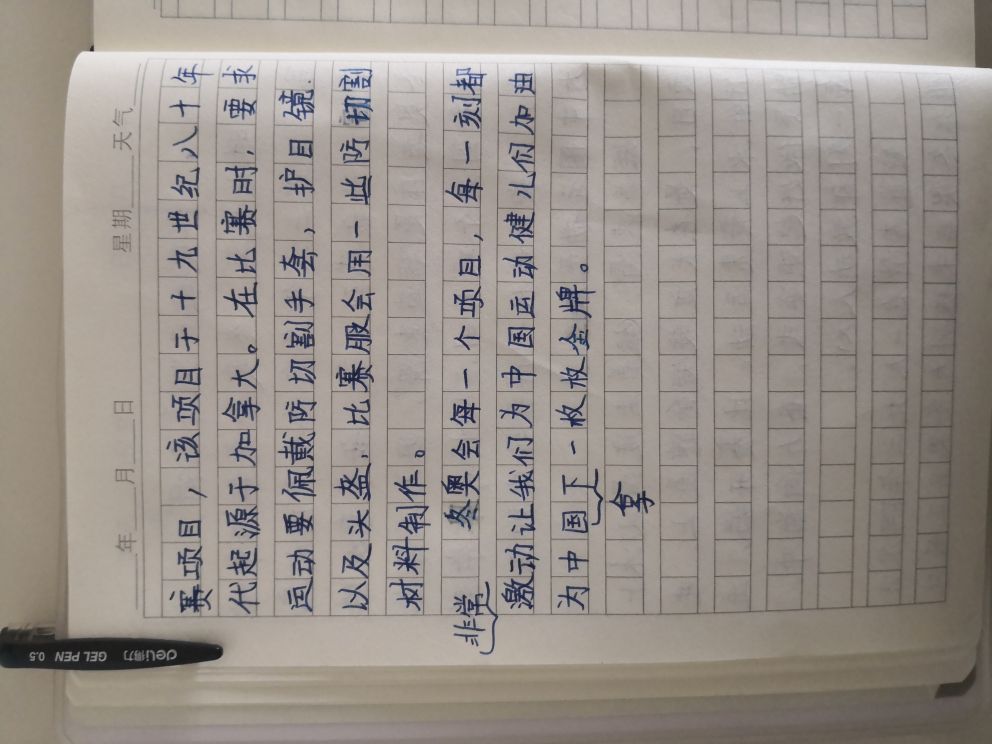 年 月 日 星期 天气
赛项目，该项目于十九世纪八十年
代起源于加拿大。在比赛时，要求
运动要佩戴防切割手套，护目镜.
以及头盔，比赛服会用一些防切割
材料制作。
冬奥会每一个项目，每一刻都
非常
激动让我们为中国运动健儿们加油
为中国下一枚枚金牌。
拿
deli得力 GEL PEN 0.5